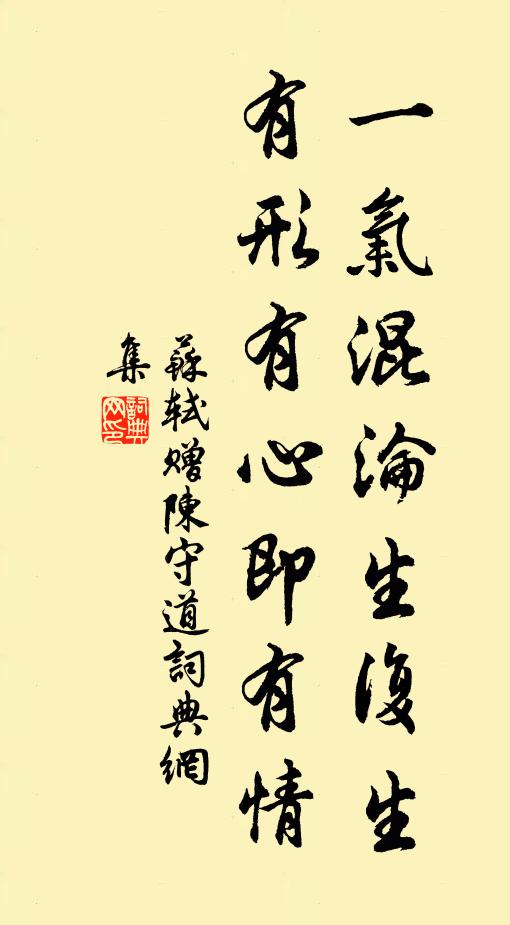 一氣混淪生復生
有形有心即有情
蘇軾贈陳守道詞典網
集
詞典
网印